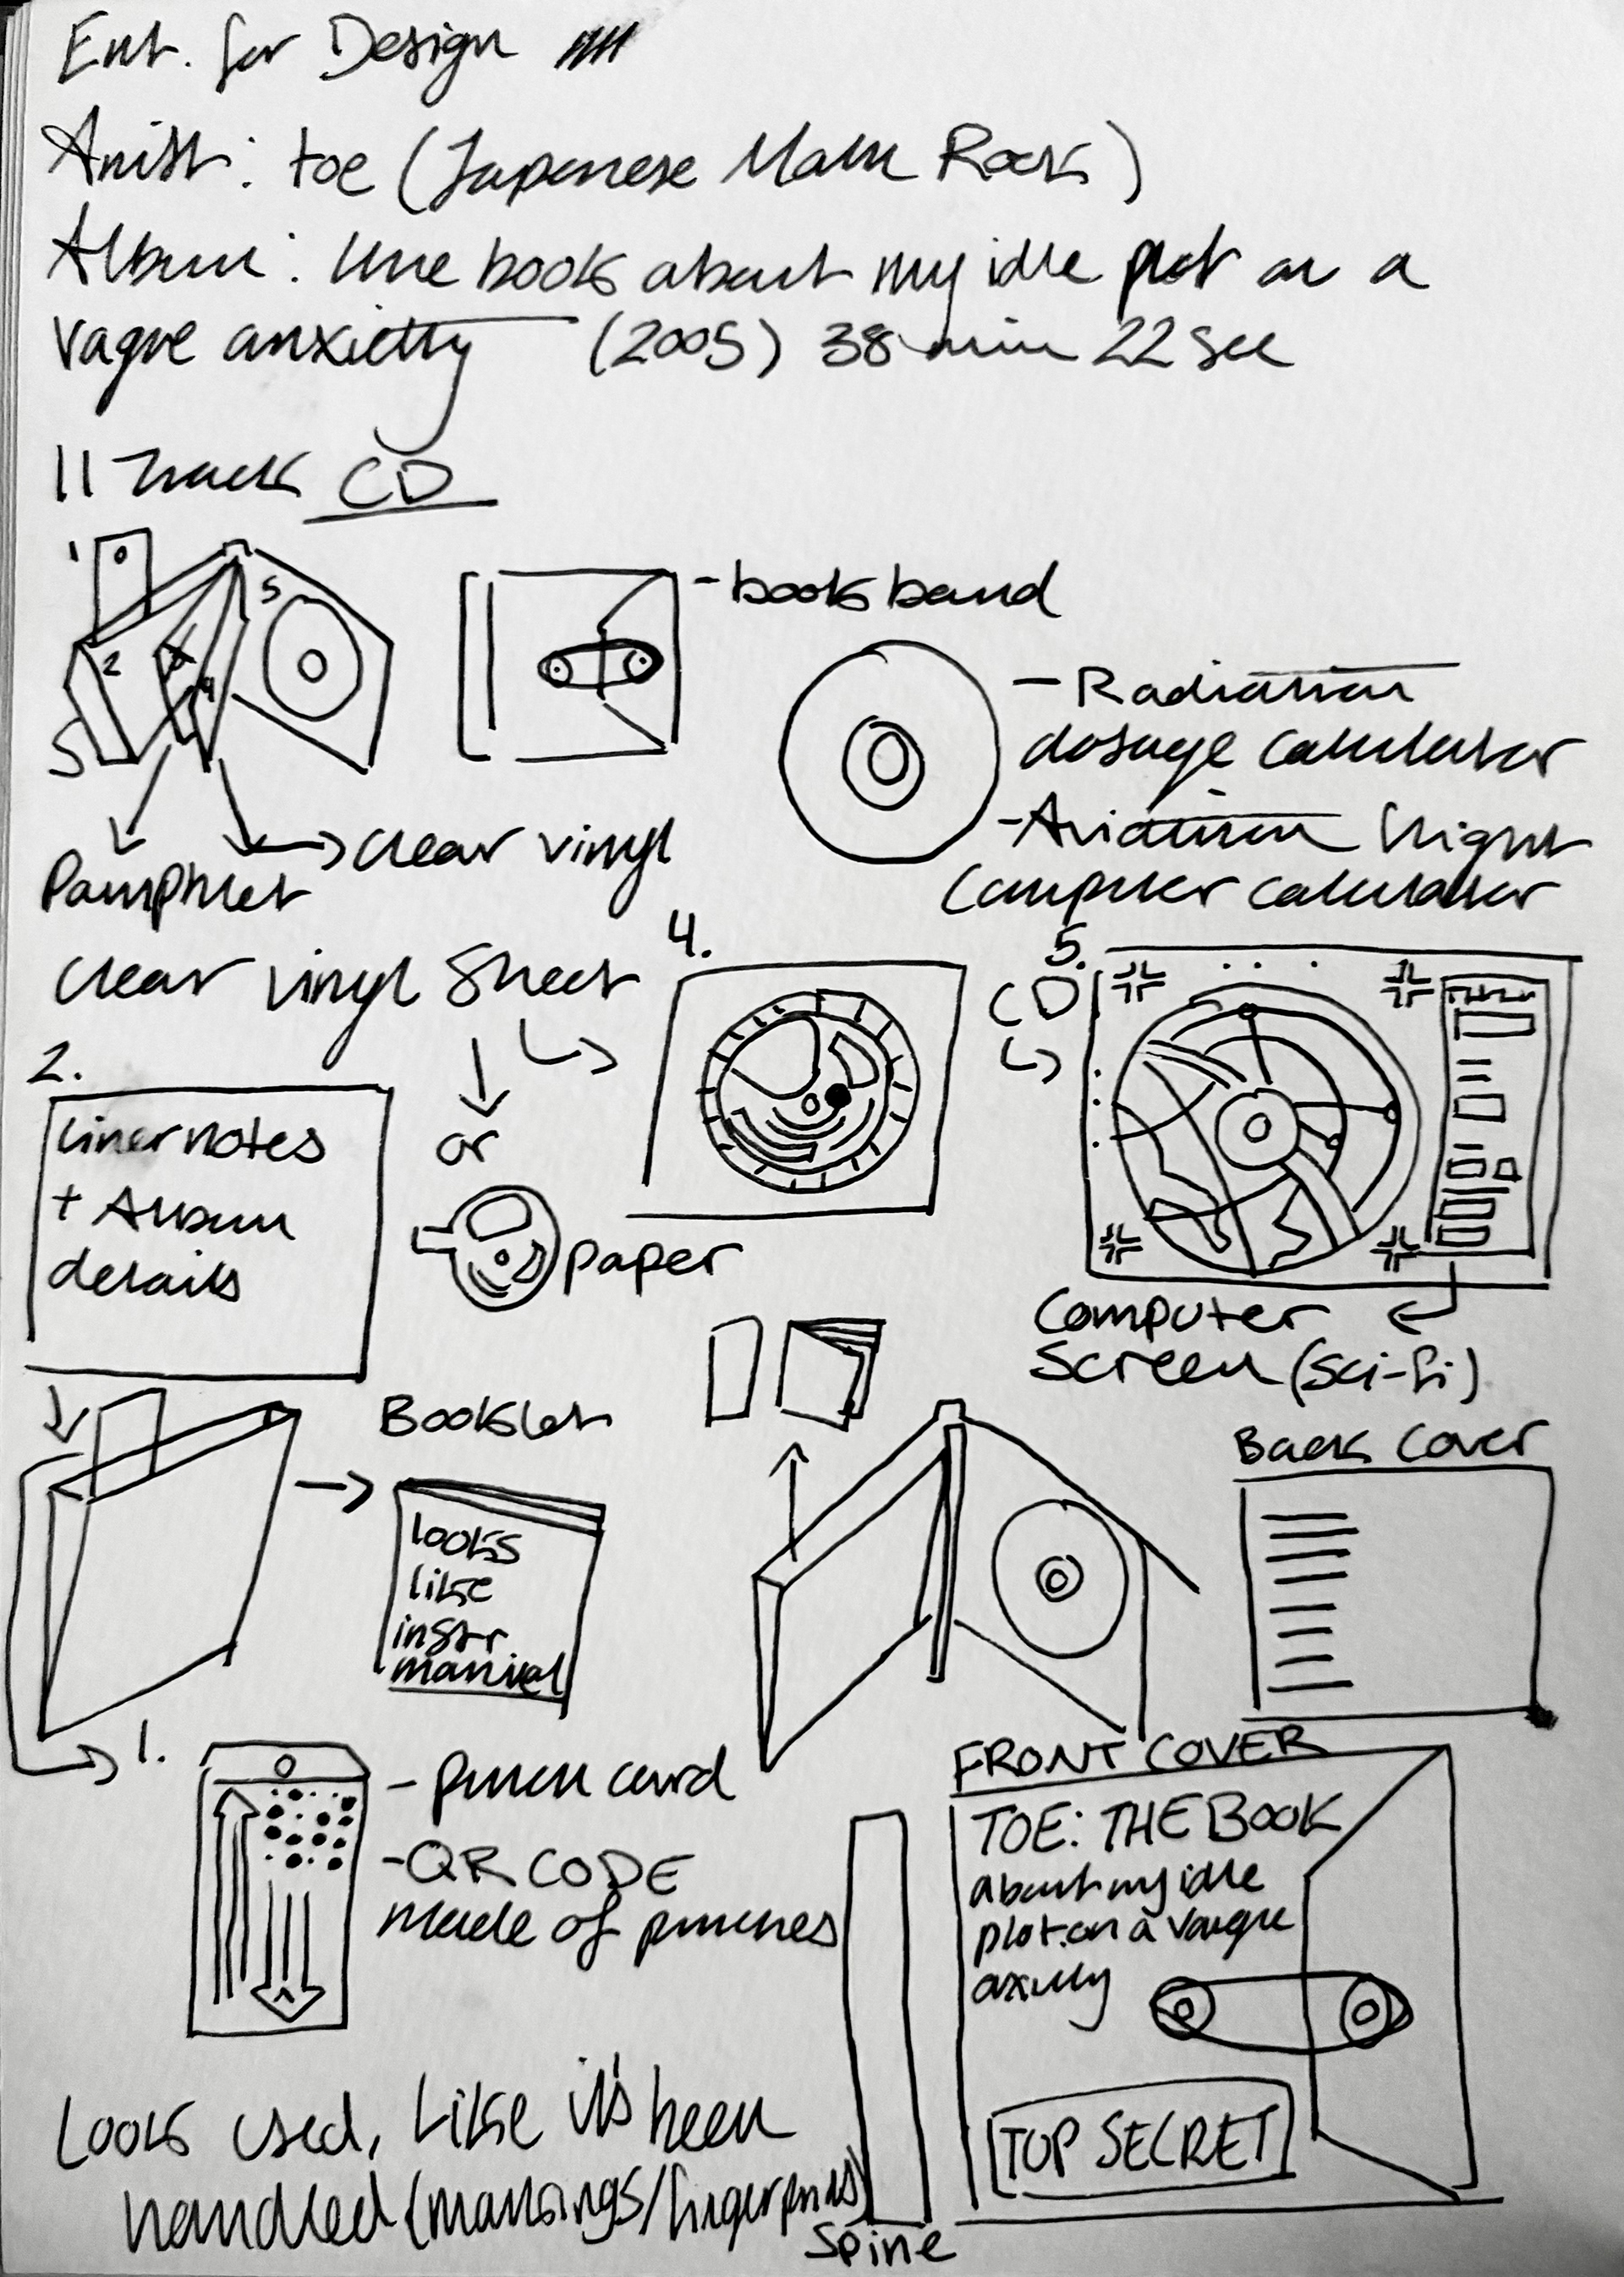 Ent. for Design
Artist: toe (Japanese Math Rock)
Album: the book about my idle plot on a
vague anxiety (2005) 38 min 22 sec
11 Track CD
1
2
3
4
5
5
- book band
- Radiation
dosage calculator
- Aviation flight
computer calculator
Pamphlet
clear vinyl
clear vinyl sheet
4.
5.
CD
2.
Liner notes
+ Album
details
or
paper
Computer
Screen (sci-fi)
Booklet
looks
like
instr
manual
Back Cover
1.
- punch card
- QR CODE
made of punches
FRONT COVER
TOE: THE BOOK
about my idle
plot on a vague
axiety
TOP SECRET
Spine
Looks used, like it's been
handled (markings/fingerprints)